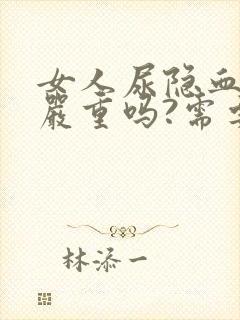 女人尿隐血
严重吗?需
林添一